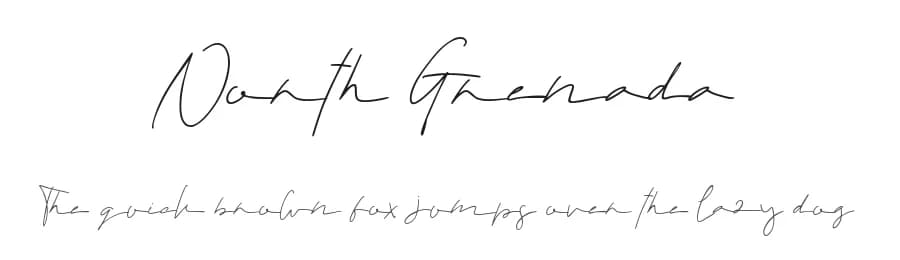 North Grenada
The quick brown fox jumps over the lazy dog